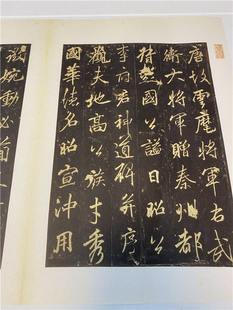 唐故雲麾將軍右武
衛大將軍贈秦州都
督彭國公諡曰昭公
李府君神道碑并序
觀夫地高公族才秀
國華德名昭宣沖用
微婉動必簡